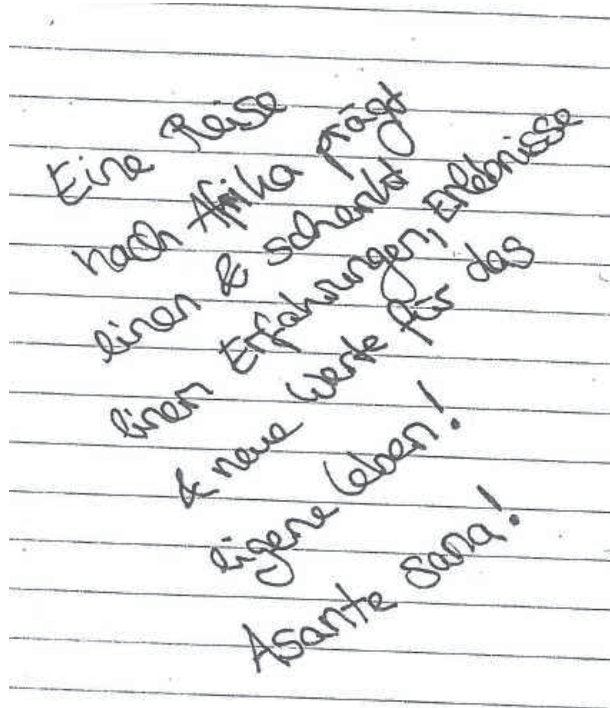 Eine Reise
nach Afrika prägt
einen & schenkt
einen Erfahrungen, Erlebnisse
& neue Werte für das
eigene Leben!
Asante Sana!